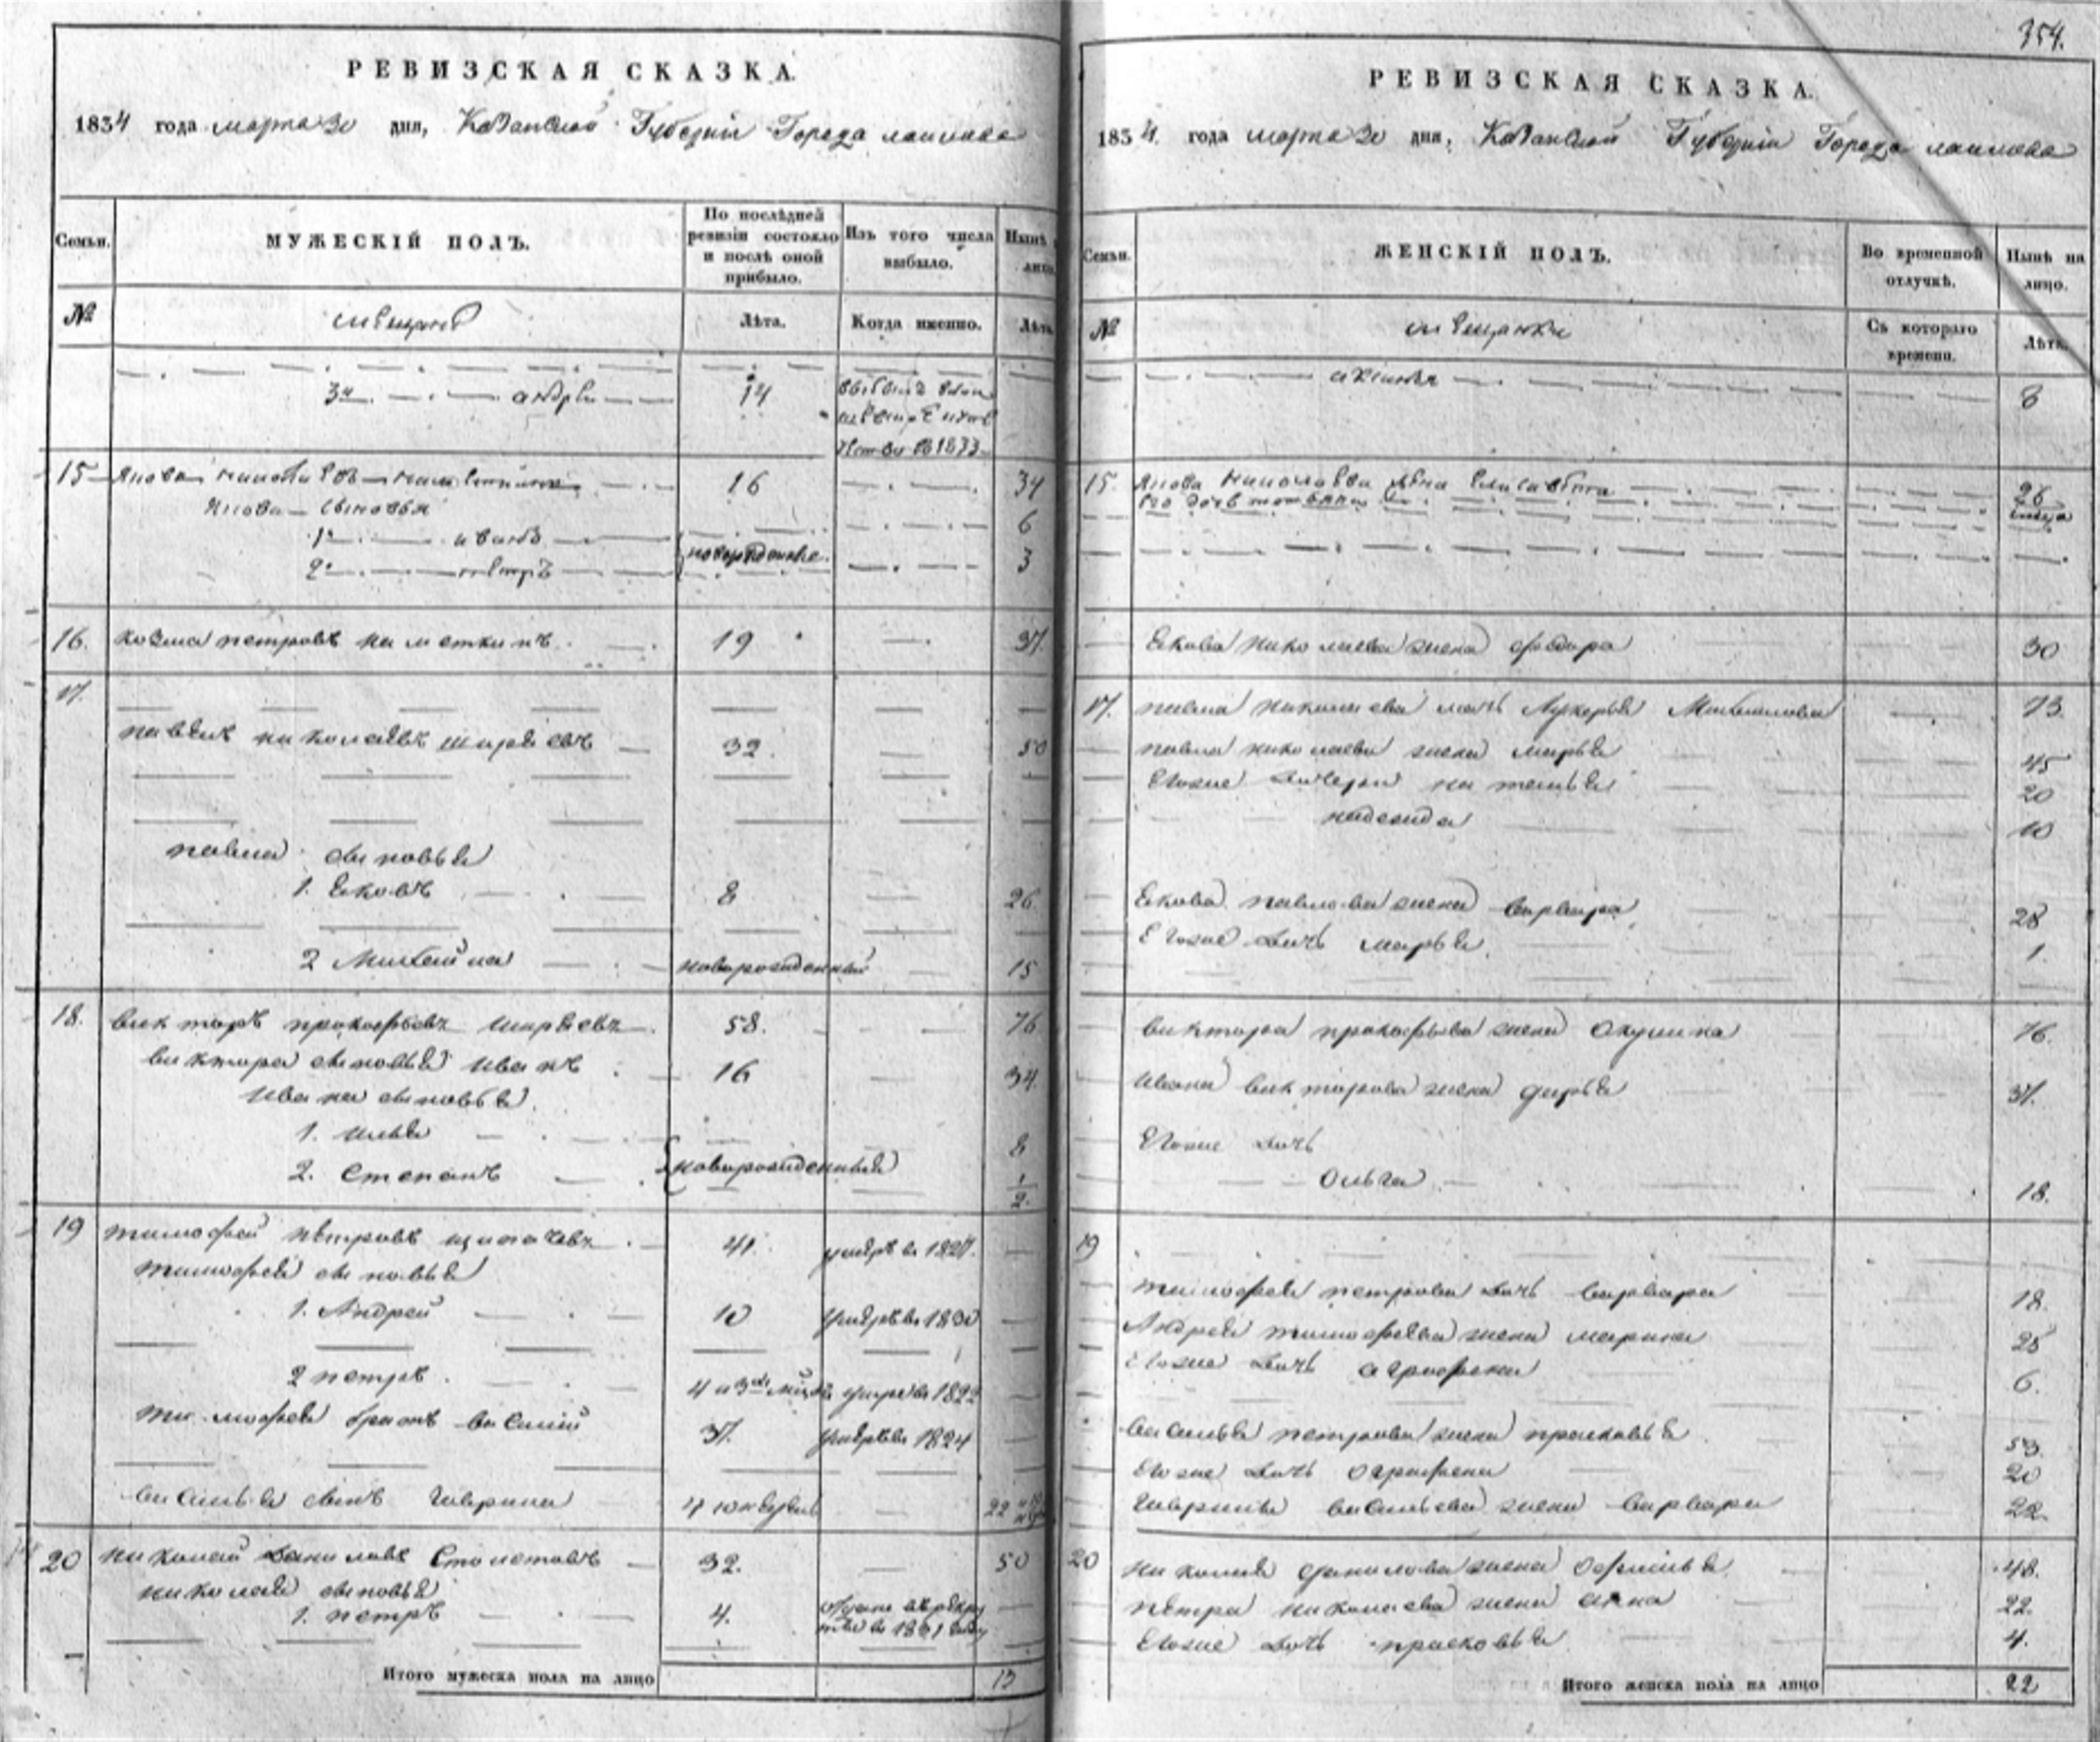 РЕВИЗСКАЯ СКАЗКА.
1834 года марта 30 дня, Казанской Губернiи Города лаишева
Семьи.
МУЖЕСКІЙ ПОЛЪ.
По послѣдней ревизіи состояло и послѣ оной прибыло.
Изъ того числа выбыло.
Нынѣ лицо
№
мещанъ
Лѣта.
Когда именно.
Лѣта
3й андрей 14
15 16 34
сыновья 6
1й иванъ новорожденные
2й петръ 3
16. козма петровъ наметкинъ 19 37
17.
павелъ николаевъ ширяевъ 32 50
павла сыновья
1. Яковъ 8 26
2 Михайла новорожденный 15
18. викторъ прокофьевъ ширяевъ 58. 76
виктора сыновья иванъ 16 34.
ивана сыновья
1. илья 8
2. степанъ новорожденныя 1/2.
19 тимофей петровъ 41 умеръ в 1827.
тимофея сыновья
1. Андрей 10 умеръ в 1830
2 петръ 4 умеръ в 1822
тимофея братъ василий 37. умеръ в 1824
василья сынъ гаврила 4 недель 22
20 николай данилавъ столетовъ 32. 50
николая сыновья
1. петръ 4. отдан в рекру
в 1831 году
Итого мужеска пола на лицо 13
354.
РЕВИЗСКАЯ СКАЗКА.
1834. года марта 30 дня, Казанской Губернiи Города лаишева
Семьи.
ЖЕНСКІЙ ПОЛЪ.
Во временной отлучкѣ.
Нынѣ на лицо.
№
мещанки
Съ котораго времени.
Лѣта.
аксинья 8
15. николаева жена Елисавета 26
его дочь
Якова николаева жена федора 30
17. павла николаева мать Лукерья Михаилова 73.
павла николаева жена марья 45
Егоже дочери наталья 20
надежда 10
Якова павлова жена варвара 28
Егоже дочь марья 1.
виктора прокофьева жена акулина 76.
ивана викторова жена дарья 37.
Егоже дочь
Ольга 18.
19
тимофея петрова дочь варвара 18.
Андрея тимофеева жена марина 25
Егоже дочь аграфена 6.
василья петрова жена прасковья 53.
Егоже дочь аграфена 20
гаврилы васильева жена варвара 22.
20 николая данилова жена афимья 48.
петра николаева жена анна 22.
Егоже дочь прасковья 4.
Итого женска пола на лицо 22